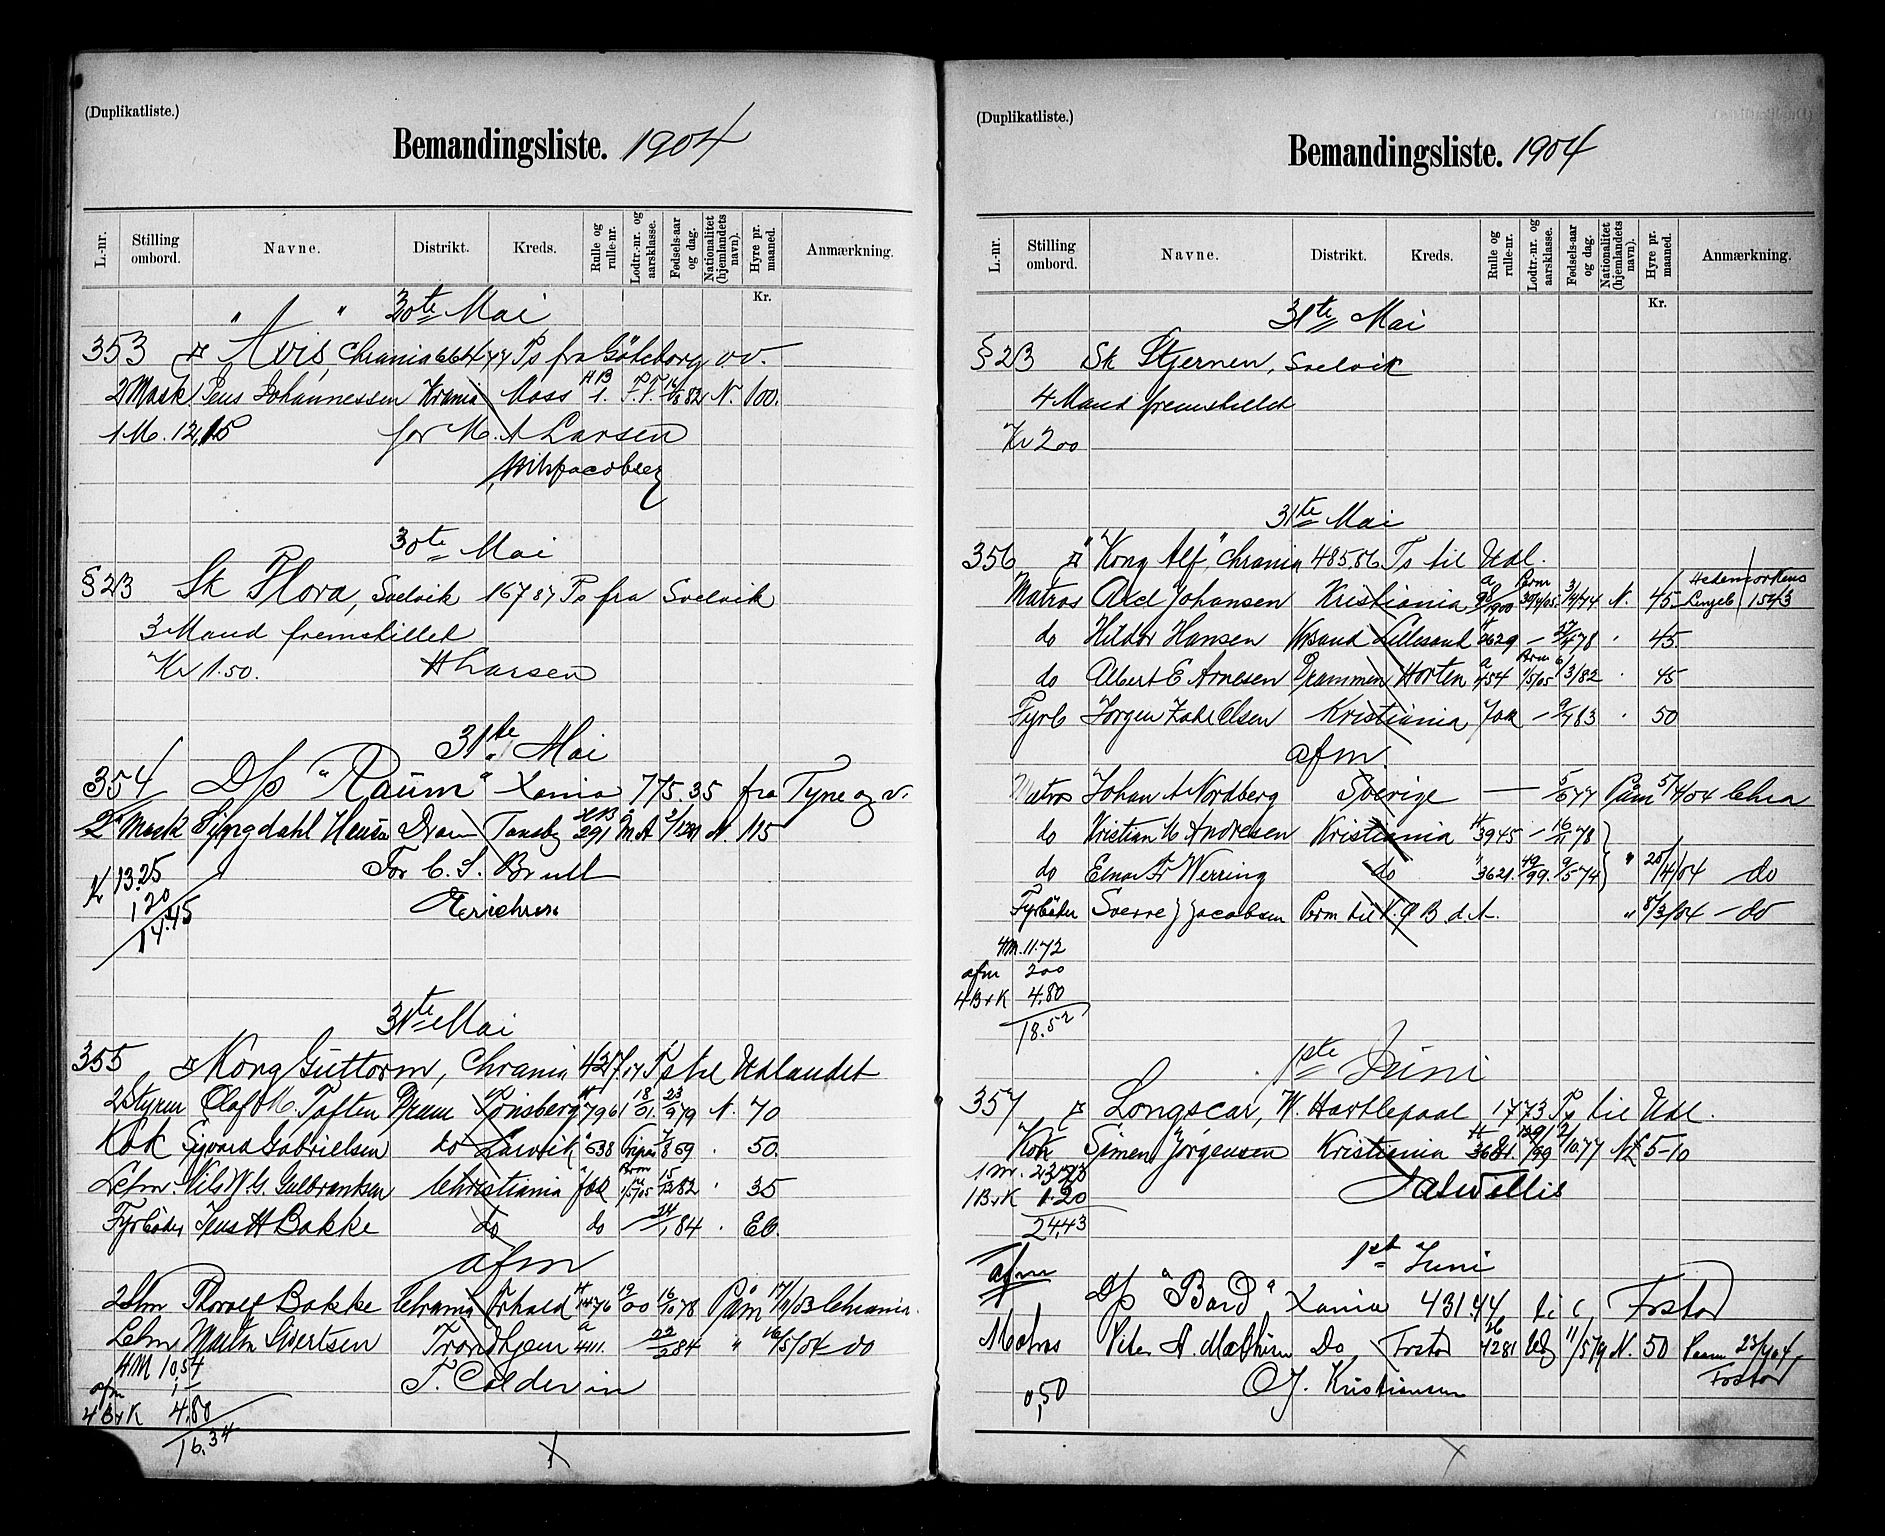 (Duplikatliste.)
Bemandingsliste. 1904
L.-nr. Stilling ombord. Navne. Distrikt. Kreds. Rulle og rulle-nr. Lodtr.-nr. og aarsklasse. Fødsels-aar og dag. Nationalitet (hjemlandets navn). Hyre pr. maaned. Anmærkning.
Kr.
" " 30te Mai
353 Avis, Chrania 664 77 Ts fra Göteborg v.v.
2 Mask Jens Johannessen Krania Moss HB 1. T.T. 16/8 82 N. 100.
1 M. 12,15 for M. A Larsen
30te Mai
§ 23 Sk Flora, Svelvik 167 87 Ts fra Svelvik
3 Mand fremstillet
Kr 1.50. H Larsen
31te Mai
354 D/s "Raum" Xania 775.35 fra Tyne og v.
2 Mask Dram Tønsbg 291 M.A N. 115
K 13.25 For C. S. Brull
1 20 Erichsen
14.45
31te Mai
355 Kong Guttorm, Chrania 427.17 Ts til Udlandet
2 Styrm Olaf M. Toften Dram Tønsberg 796 18/01. 23/9 79 N. 70
Kok Sigvard Gabrielsen do Larvik 638 7/8 69 . 50.
Letm. Nils W. G. Gulbranksen Christiania 15/12 82 . 35
Fyrbøder Jens H Bakke do do 84 .
afm
2 Stm Thorolf Bakke Chrania 476 19/00 16/10 78 Paam 17/9/03 Chrania.
Letm Martin Sivertsen Trondhjem a 411. 22/2 84 " 16/5/04 do
4 M 10,54 T. Calderin
afm 1,-
4 B+K 4.80
16.34
(Duplikatliste.)
Bemandingsliste. 1904
L.-nr. Stilling ombord. Navne. Distrikt. Kreds. Rulle og rulle-nr. Lodtr.-nr. og aarsklasse. Fødsels-aar og dag. Nationalitet (hjemlandets navn). Hyre pr. maaned. Anmærkning.
Kr.
31te Mai
§ 23 Sk Stjernen, Svelvik
4 Mand fremstillet
Kr 2 00
31te Mai
356 "Kong Alf" Chrania 485.86 Ts til Udl.
Matros Axel Johansen Kristiania a 98/900 Perm 30/4/05 3/4/74 N. 45 1543
do Hildor Hansen Krsand Lillesand 2629 - 78 . 45.
do Albert E Arnesen Drammen Horten a 454 Perm 1/5/05 6/3/82 . 45
Fyrb Jørgen Olsen Kristiania - 83 . 50
afm.
Matros Johan A Nordberg Sverige — 5/6 77 Paam 5/4/04 Chra
do Kristian M Andresen Kristiania 3945 - 16/11 78
do Einar Fr Werring do 3621. 49/99. 9/5 74 " 25/4/04 do
Fyrbøder Sverre J Jacobsen Perm til " 8/3/04 - do
4 M. 11.72
afm 2 00
4 B+K 4.80
18.52
1ste Juni
357 Longscar, W. Hartlepool 1773 Ts til Udl.
Kok Simen Jørgensen Kristiania 3681. 2/10 77 5-10
1 M. 23,23 Willis
1 B+K 1.20
24.43
1st Juni
afm D/s "Bard" Xania 431.44 Fostad
Matros Peter A. Do Fostad 4281 Udg 11/5 79 N. 50 Paam 23/4 04
0,50 O J. Kristiansen Fostad